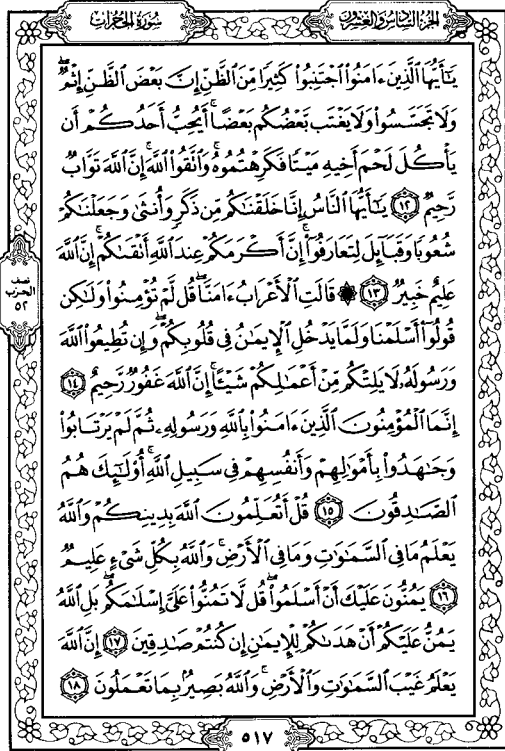 سورة الحجرات
الجزء السادس والعشرون
يَٰٓأَيُّهَا ٱلَّذِينَ ءَامَنُوا۟ ٱجْتَنِبُوا۟ كَثِيرًا مِّنَ ٱلظَّنِّ إِنَّ بَعْضَ ٱلظَّنِّ إِثْمٌ ۖ
وَلَا تَجَسَّسُوا۟ وَلَا يَغْتَب بَّعْضُكُم بَعْضًا ۚ أَيُحِبُّ أَحَدُكُمْ أَن
يَأْكُلَ لَحْمَ أَخِيهِ مَيْتًا فَكَرِهْتُمُوهُ ۚ وَٱتَّقُوا۟ ٱللَّهَ ۚ إِنَّ ٱللَّهَ تَوَّابٌ
رَّحِيمٌ ١٢ يَٰٓأَيُّهَا ٱلنَّاسُ إِنَّا خَلَقْنَٰكُم مِّن ذَكَرٍ وَأُنثَىٰ وَجَعَلْنَٰكُمْ
شُعُوبًا وَقَبَآئِلَ لِتَعَارَفُوٓا۟ ۚ إِنَّ أَكْرَمَكُمْ عِندَ ٱللَّهِ أَتْقَىٰكُمْ ۚ إِنَّ ٱللَّهَ
عَلِيمٌ خَبِيرٌ ١٣ ۞ قَالَتِ ٱلْأَعْرَابُ ءَامَنَّا ۖ قُل لَّمْ تُؤْمِنُوا۟ وَلَٰكِن
قُولُوٓا۟ أَسْلَمْنَا وَلَمَّا يَدْخُلِ ٱلْإِيمَٰنُ فِى قُلُوبِكُمْ ۖ وَإِن تُطِيعُوا۟ ٱللَّهَ
وَرَسُولَهُۥ لَا يَلِتْكُم مِّنْ أَعْمَٰلِكُمْ شَيْـًٔا ۚ إِنَّ ٱللَّهَ غَفُورٌ رَّحِيمٌ ١٤
إِنَّمَا ٱلْمُؤْمِنُونَ ٱلَّذِينَ ءَامَنُوا۟ بِٱللَّهِ وَرَسُولِهِۦ ثُمَّ لَمْ يَرْتَابُوا۟
وَجَٰهَدُوا۟ بِأَمْوَٰلِهِمْ وَأَنفُسِهِمْ فِى سَبِيلِ ٱللَّهِ ۚ أُو۟لَٰٓئِكَ هُمُ
ٱلصَّٰدِقُونَ ١٥ قُلْ أَتُعَلِّمُونَ ٱللَّهَ بِدِينِكُمْ وَٱللَّهُ
يَعْلَمُ مَا فِى ٱلسَّمَٰوَٰتِ وَمَا فِى ٱلْأَرْضِ ۚ وَٱللَّهُ بِكُلِّ شَىْءٍ عَلِيمٌ
١٦ يَمُنُّونَ عَلَيْكَ أَنْ أَسْلَمُوا۟ ۖ قُل لَّا تَمُنُّوا۟ عَلَىَّ إِسْلَٰمَكُم ۖ بَلِ ٱللَّهُ
يَمُنُّ عَلَيْكُمْ أَنْ هَدَىٰكُمْ لِلْإِيمَٰنِ إِن كُنتُمْ صَٰدِقِينَ ١٧ إِنَّ ٱللَّهَ
يَعْلَمُ غَيْبَ ٱلسَّمَٰوَٰتِ وَٱلْأَرْضِ ۚ وَٱللَّهُ بَصِيرٌۢ بِمَا تَعْمَلُونَ ١٨
نصف
الحزب
٥٢
٥١٧